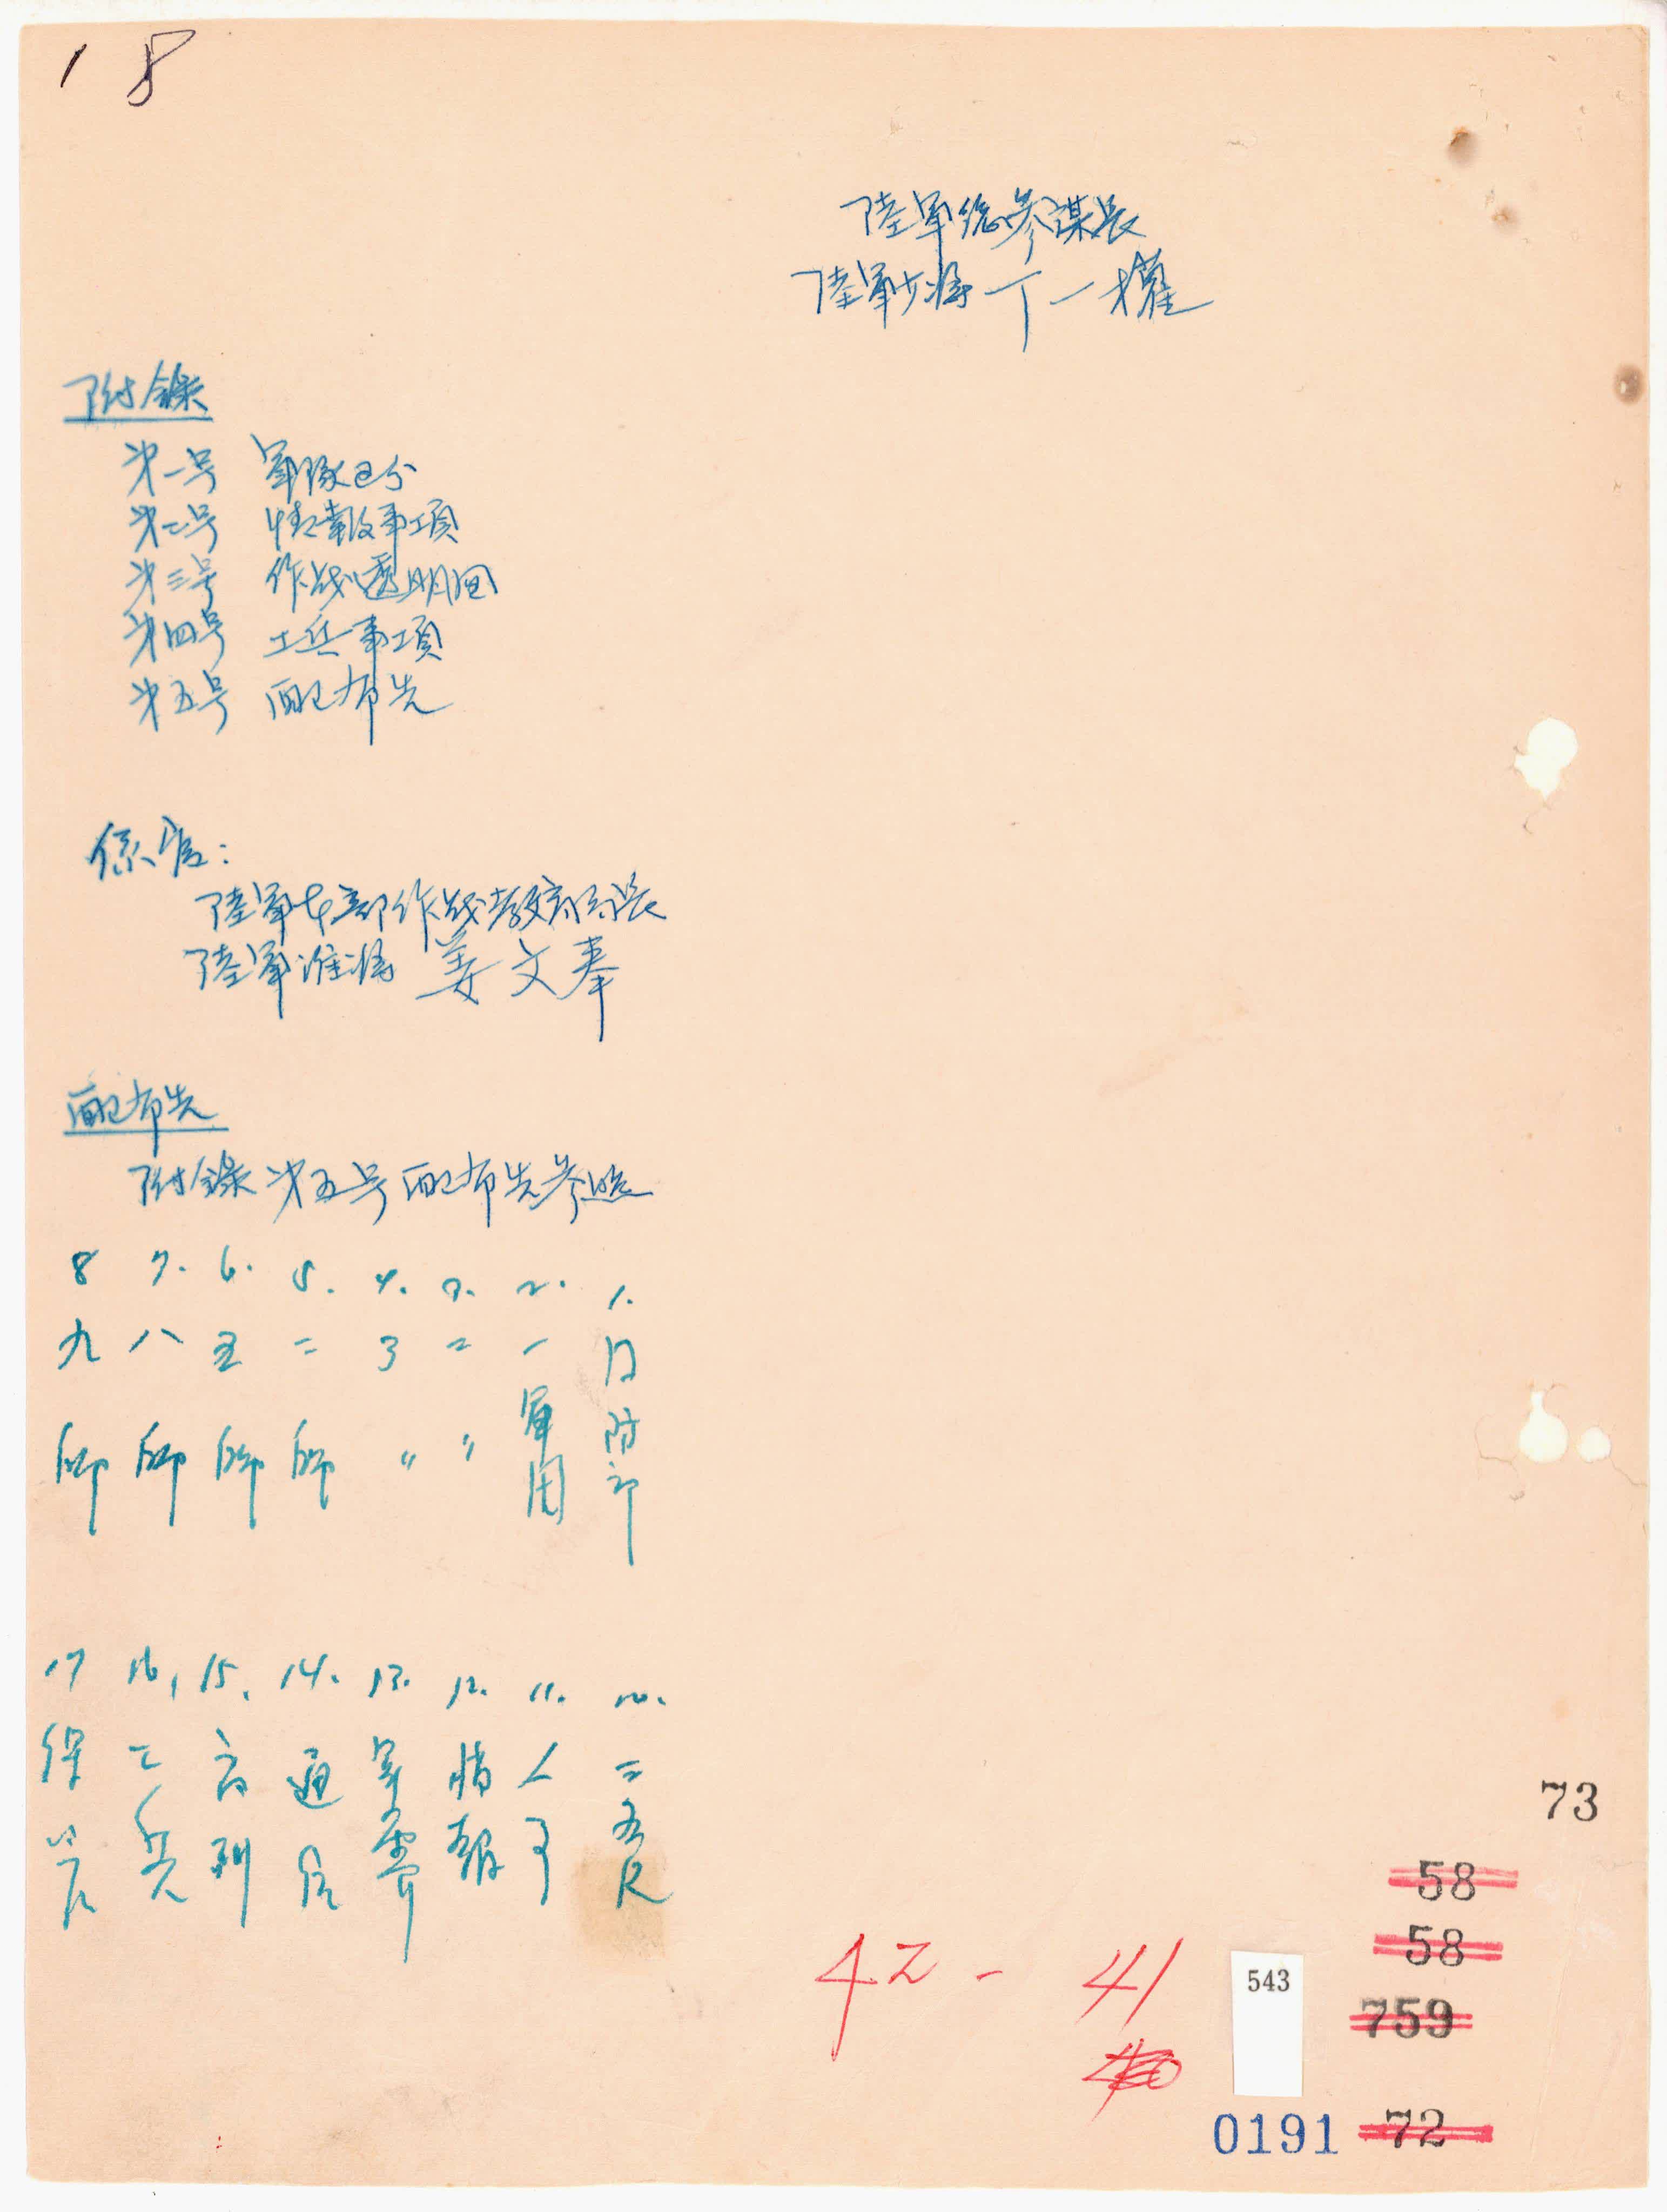 18
陸軍総参謀長
陸軍少將 丁一權
附錄
第一号 軍隊区分
第二号 情報事項
第三号 作战透明図
第四号 工兵事項
第五号 配布先
係官:
陸軍本部作战教育局長
陸軍准將 姜文奉
配布先
附錄 第五号 配布先参照
1. 国防部
2. 一軍団
3. 二 〃
4. 3 〃
5. 二 師
6. 五 師
7. 八 師
8 九 師
11. 人事
12. 情報
13. 軍需
14. 通信
16, 工兵
73
58
58
759
543
42 - 41
40
0191 72